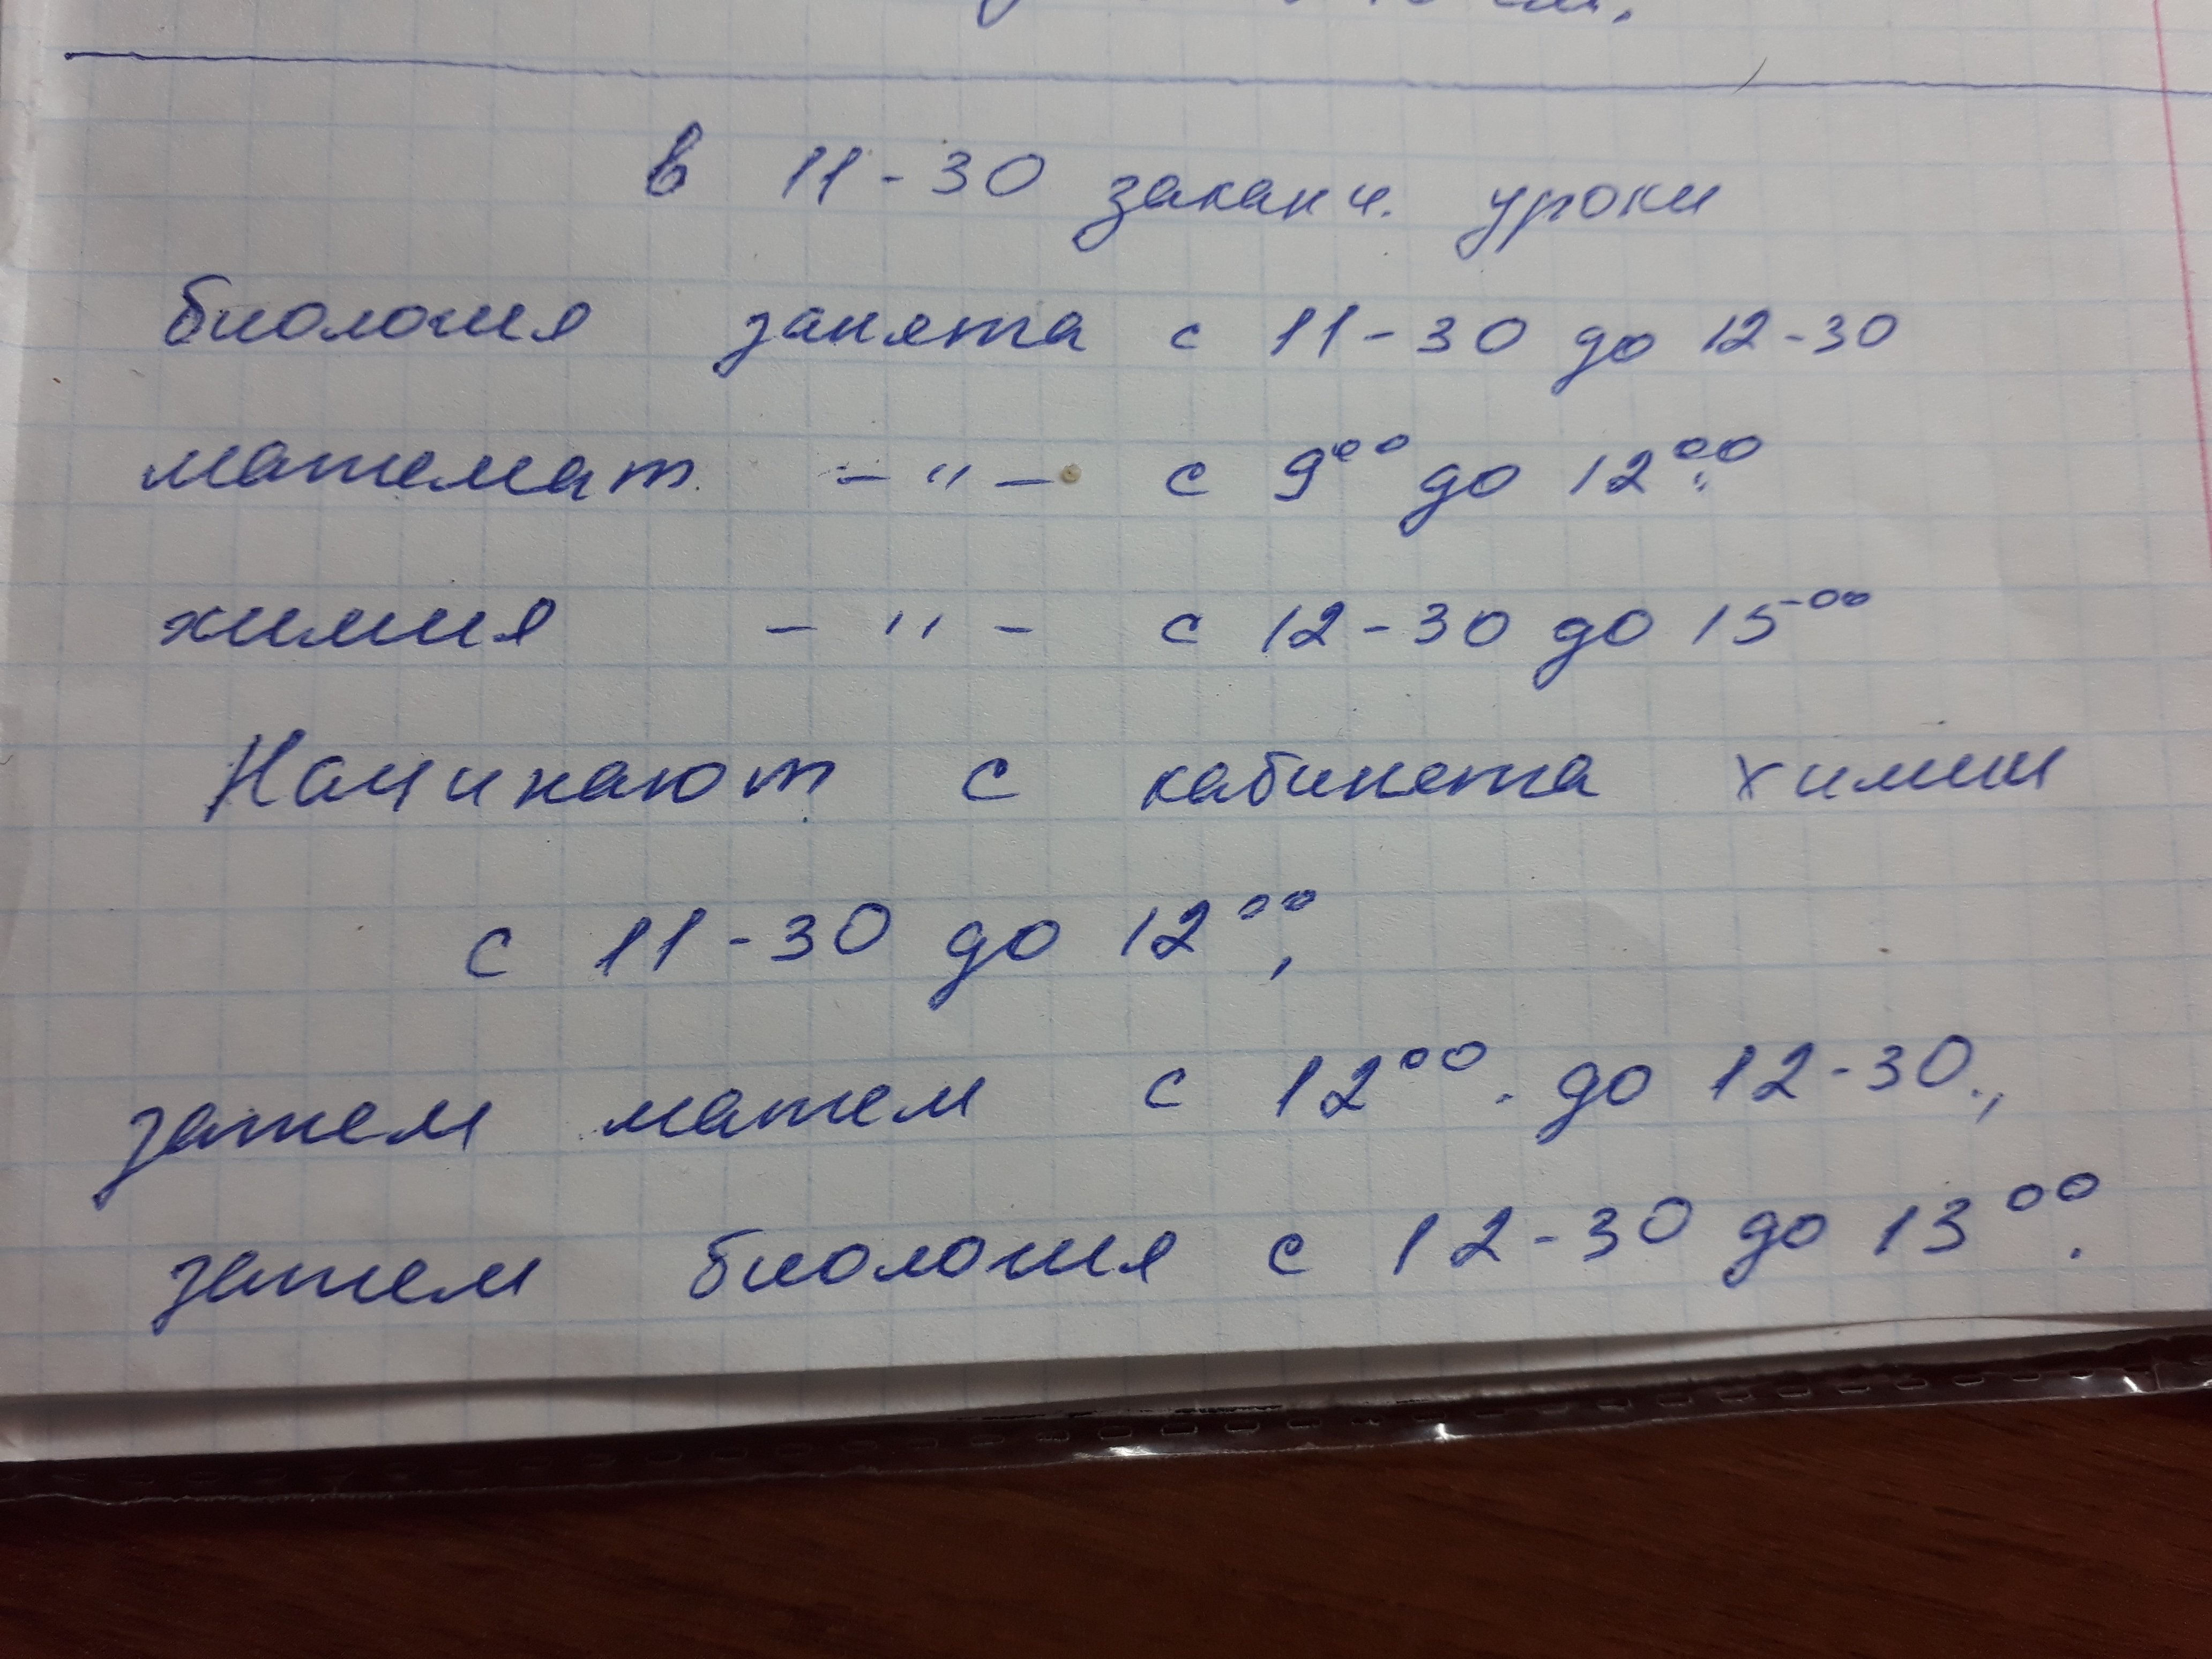 в 11-30 заканч. уроки
биология занята с 11-30 до 12-30
математ. - " - с 9⁰⁰ до 12⁰⁰.
химия - " - с 12-30 до 15-⁰⁰
Начинают с кабинета химии
с 11-30 до 12⁰⁰,
затем матем с 12⁰⁰. до 12-30.,
затем биология с 12-30 до 13⁰⁰.